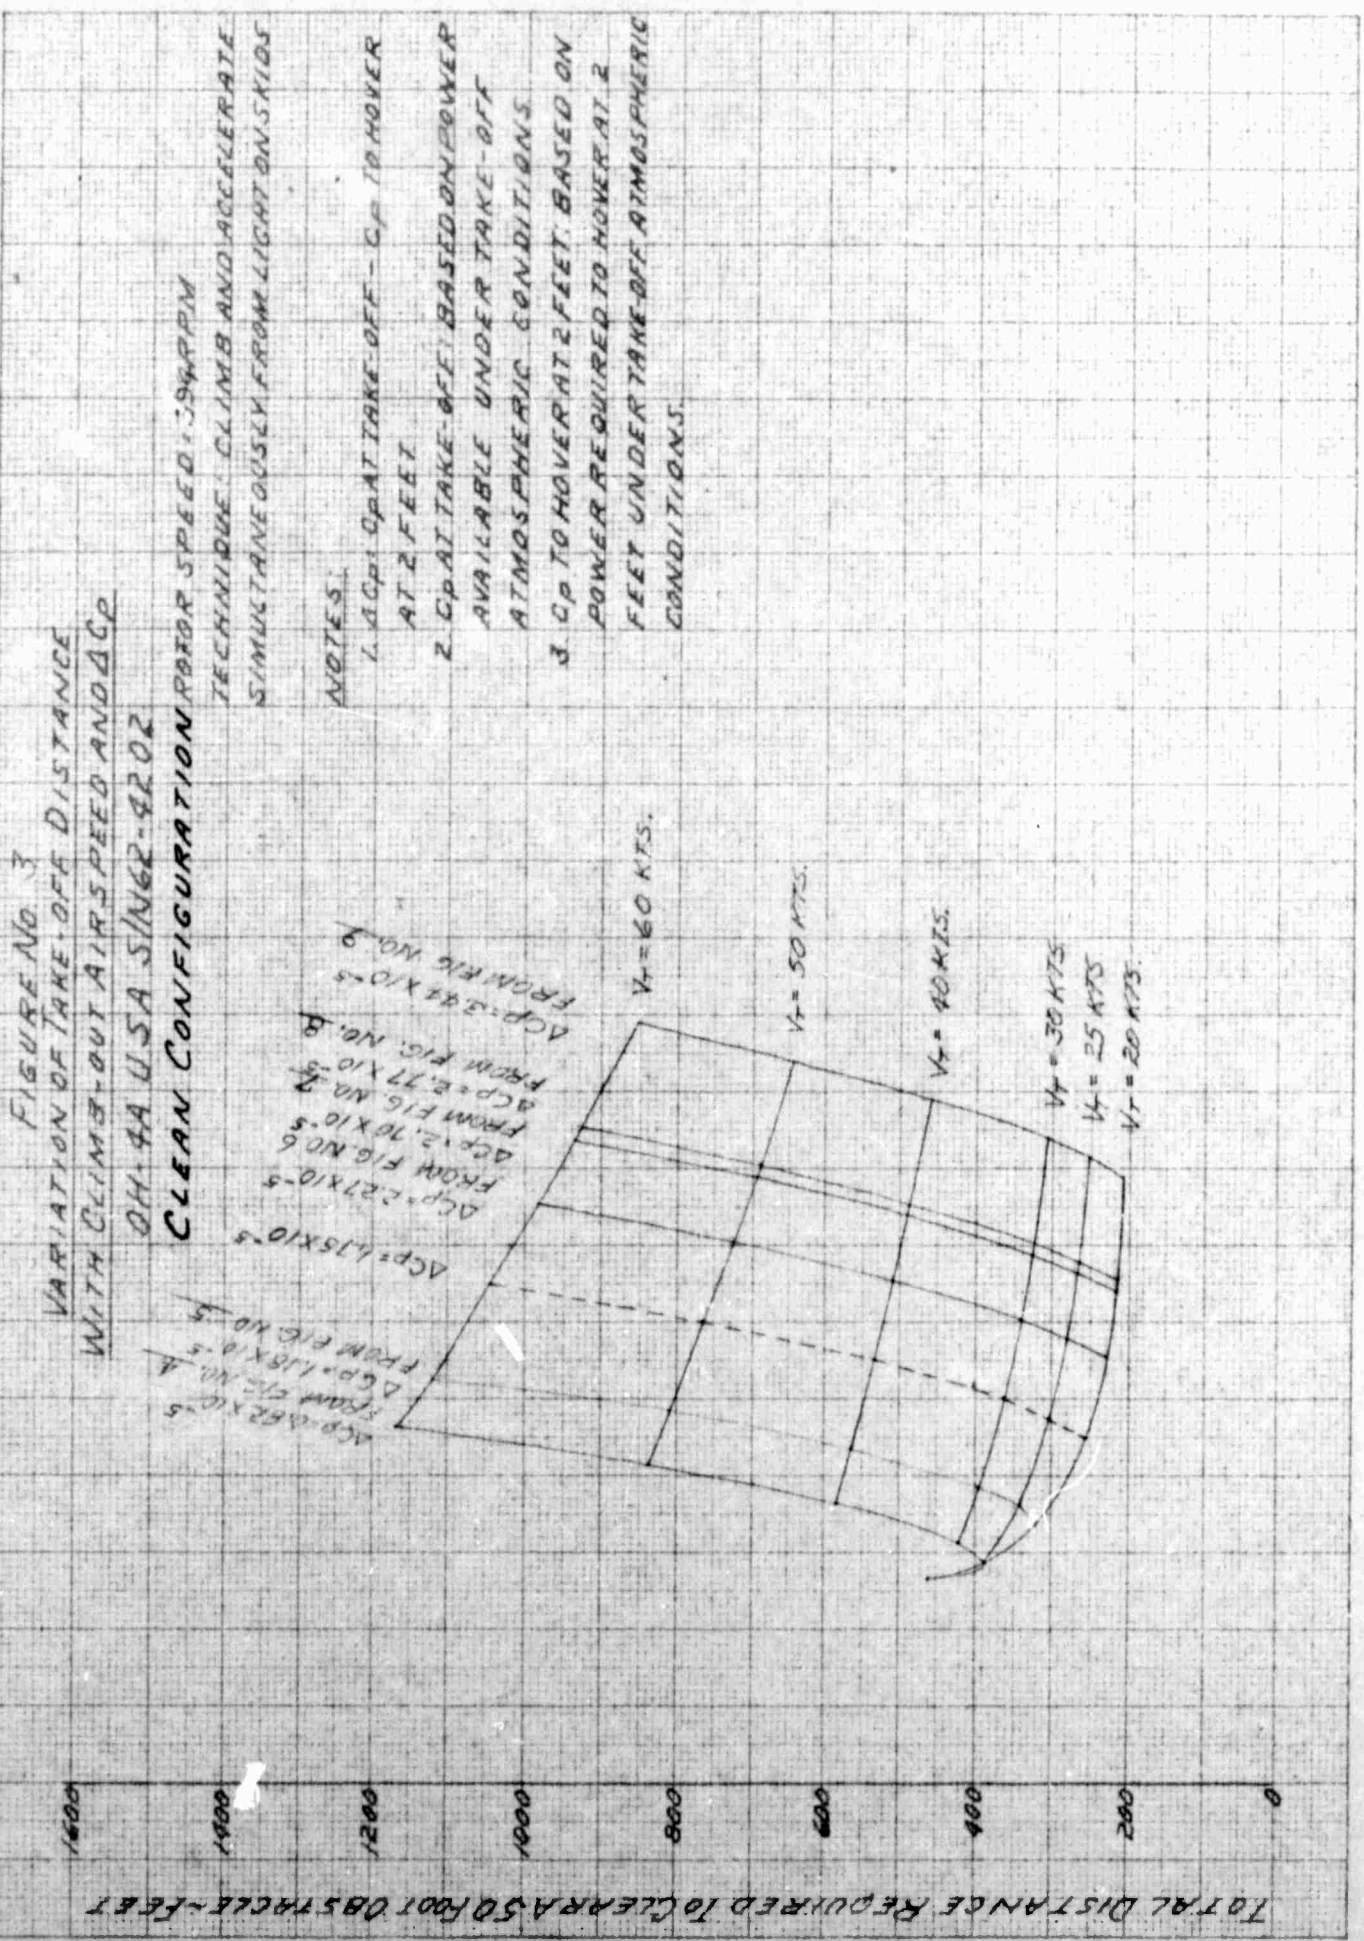 FIGURE NO. 3
VARIATION OF TAKE-OFF DISTANCE
WITH CLIMB-OUT AIRSPEED AND ΔCP
OH-4A USA S/N62-4202
CLEAN CONFIGURATION ROTOR SPEED: 394RPM
TECHNIQUE: CLIMB AND ACCELERATE
SIMULTANEOUSLY FROM LIGHT ON SKIDS
NOTES:
1. ΔCP: CP AT TAKE-OFF - CP TO HOVER
AT 2 FEET
2. CP AT TAKE-OFF: BASED ON POWER
AVAILABLE UNDER TAKE-OFF
ATMOSPHERIC CONDITIONS
3. CP TO HOVER AT 2 FEET: BASED ON
POWER REQUIRED TO HOVER AT 2
FEET UNDER TAKE-OFF ATMOSPHERIC
CONDITIONS.
ΔCP=0.82 X 10-5
FROM FIG. NO. 4
ΔCP=1.18 X 10-5
FROM FIG. NO. 5
ΔCP=1.75 X 10-5
ΔCP=2.27 X 10-5
FROM FIG. NO 6
ΔCP=2.70 X 10-5
FROM FIG. NO. 7
ΔCP=2.77 X 10-5
FROM FIG. NO. 8
ΔCP=3.44 X 10-5
FROM FIG. NO. 9
VT = 60 KTS.
VT = 50 KTS.
VT = 40 KTS.
VT = 30 KTS
VT = 25 KTS
VT = 20 KTS.
TOTAL DISTANCE REQUIRED TO CLEAR A 50 FOOT OBSTACLE~FEET
1600
1400
1200
1000
800
600
400
200
0